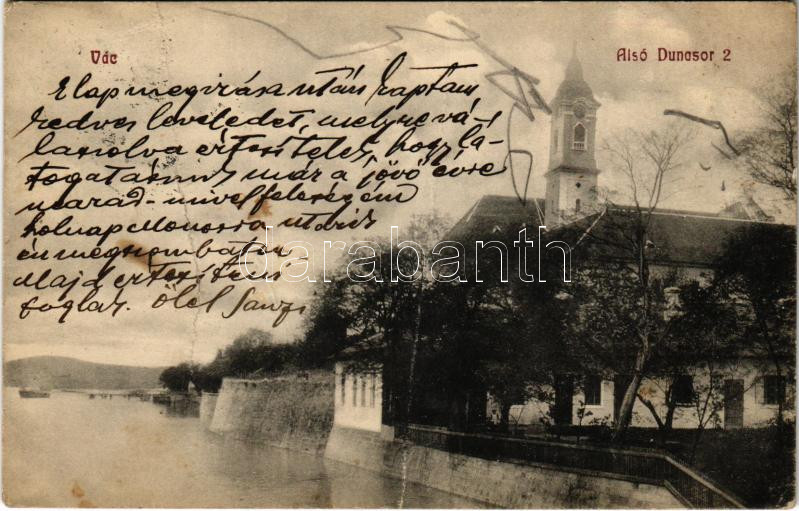 Vác
Alsó Dunasor 2
E lap megirása után kaptam
kedves leveledet, melyre vá-
laszolva értesítelek, hogy lá-
togatásunk már a jövő évre
marad - mivel feleségém
holnap Monorra utazik
én meg szombaton.
Majd értesíteni
foglak. Ölel
darabanth.com